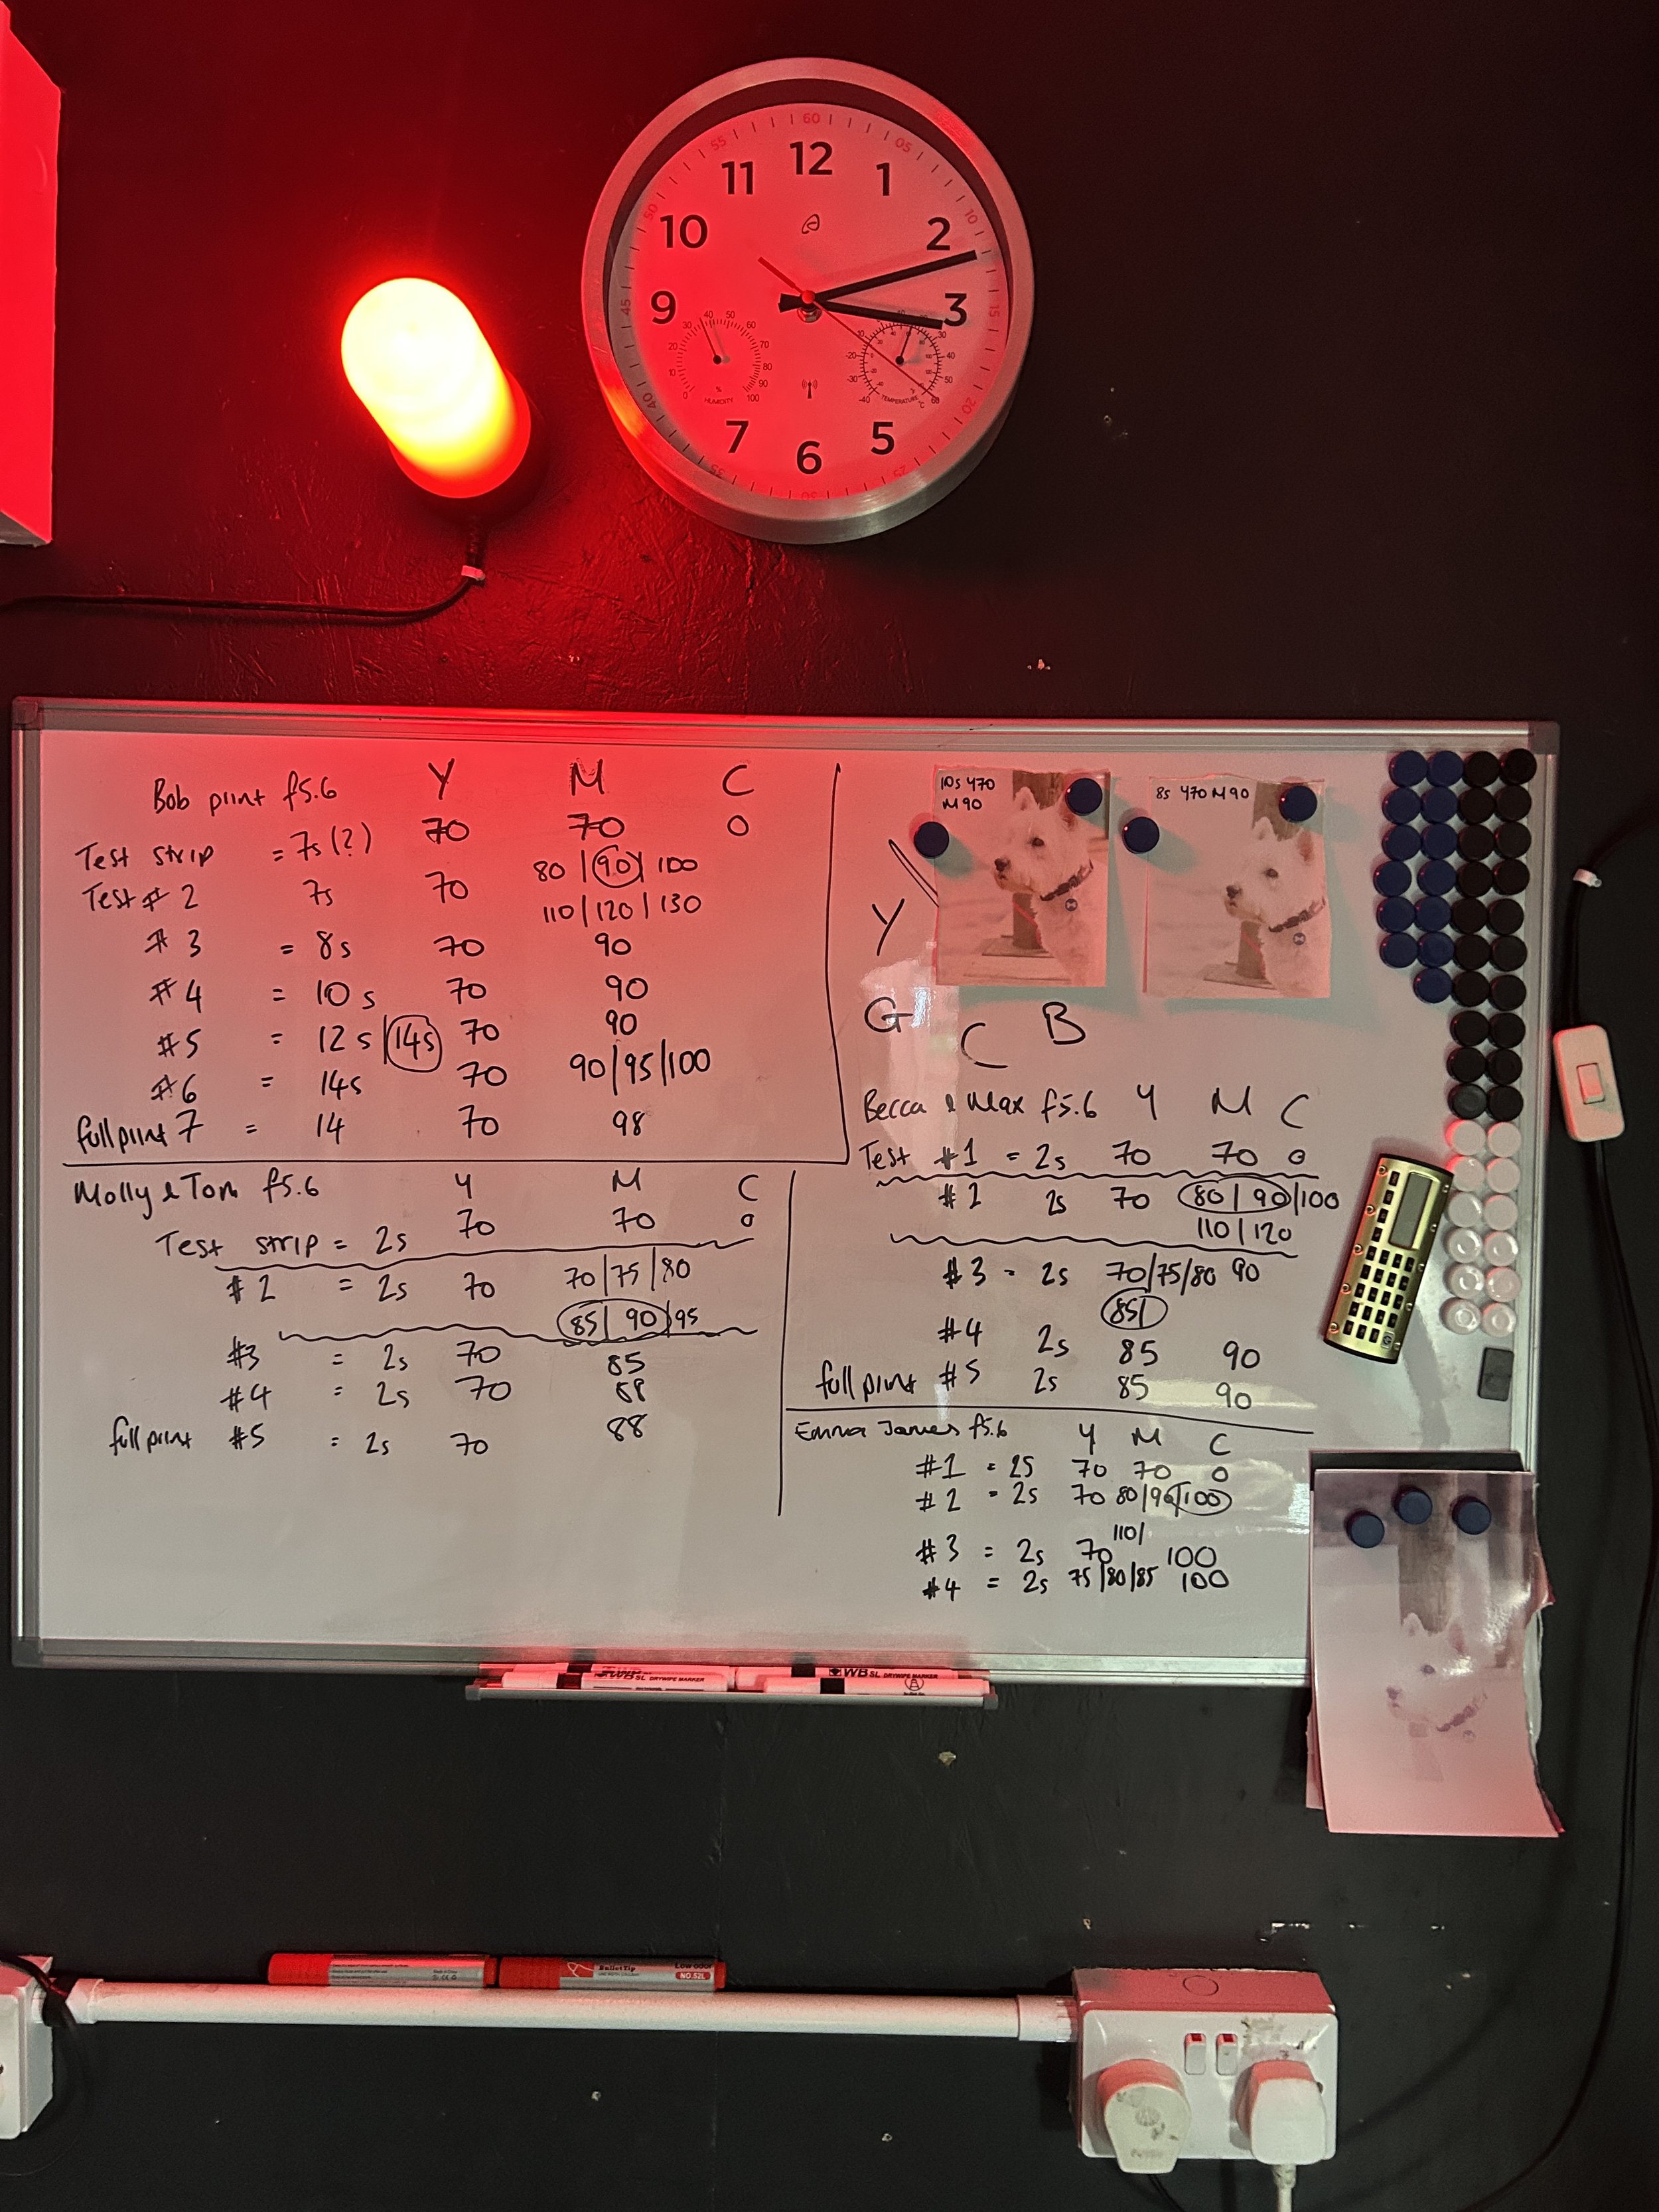 60
55
05
12
11
1
50
10
10
2
9
3
45
15
40
20
7
5
6
35
25
30
30
40
50
60
20
70
10
80
90
0
%
100
HUMIDITY
-20
-30
-40
30
40
50
60
TEMPERATURE
Bob print f5.6 Y M C
Test strip = 7s (?) 70 70 0
Test # 2 7s 70 80 | 90 | 100
110 | 120 | 130
# 3 = 8s 70 90
# 4 = 10 s 70 90
# 5 = 12 s | 14s 70 90
# 6 = 14s 70 90/95/100
full print 7 = 14 70 98
Molly & Tom f5.6 Y M C
Test strip = 2s 70 70 0
# 2 = 2s 70 70/75/80
85/ 90/95
#3 = 2s 70 85
#4 = 2s 70 88
full print #5 = 2s 70 88
10s Y70
M90
8s Y70 M90
Y
G C B
Becca & Max f5.6 Y M C
Test #1 = 2s 70 70 0
# 2 2s 70 80 / 90/100
110 / 120
#3 = 2s 70/75/80 90
85/
#4 2s 85 90
full print #5 2s 85 90
Emma James f5.6 Y M C
#1 = 2s 70 70 0
#2 = 2s 70 80/90/100
110/
#3 = 2s 70 100
#4 = 2s 75/80/85 100
WB SL DRYWIPE MARKER
WB SL DRYWIPE MARKER
Bullet Tip
Low odor
NO.52L